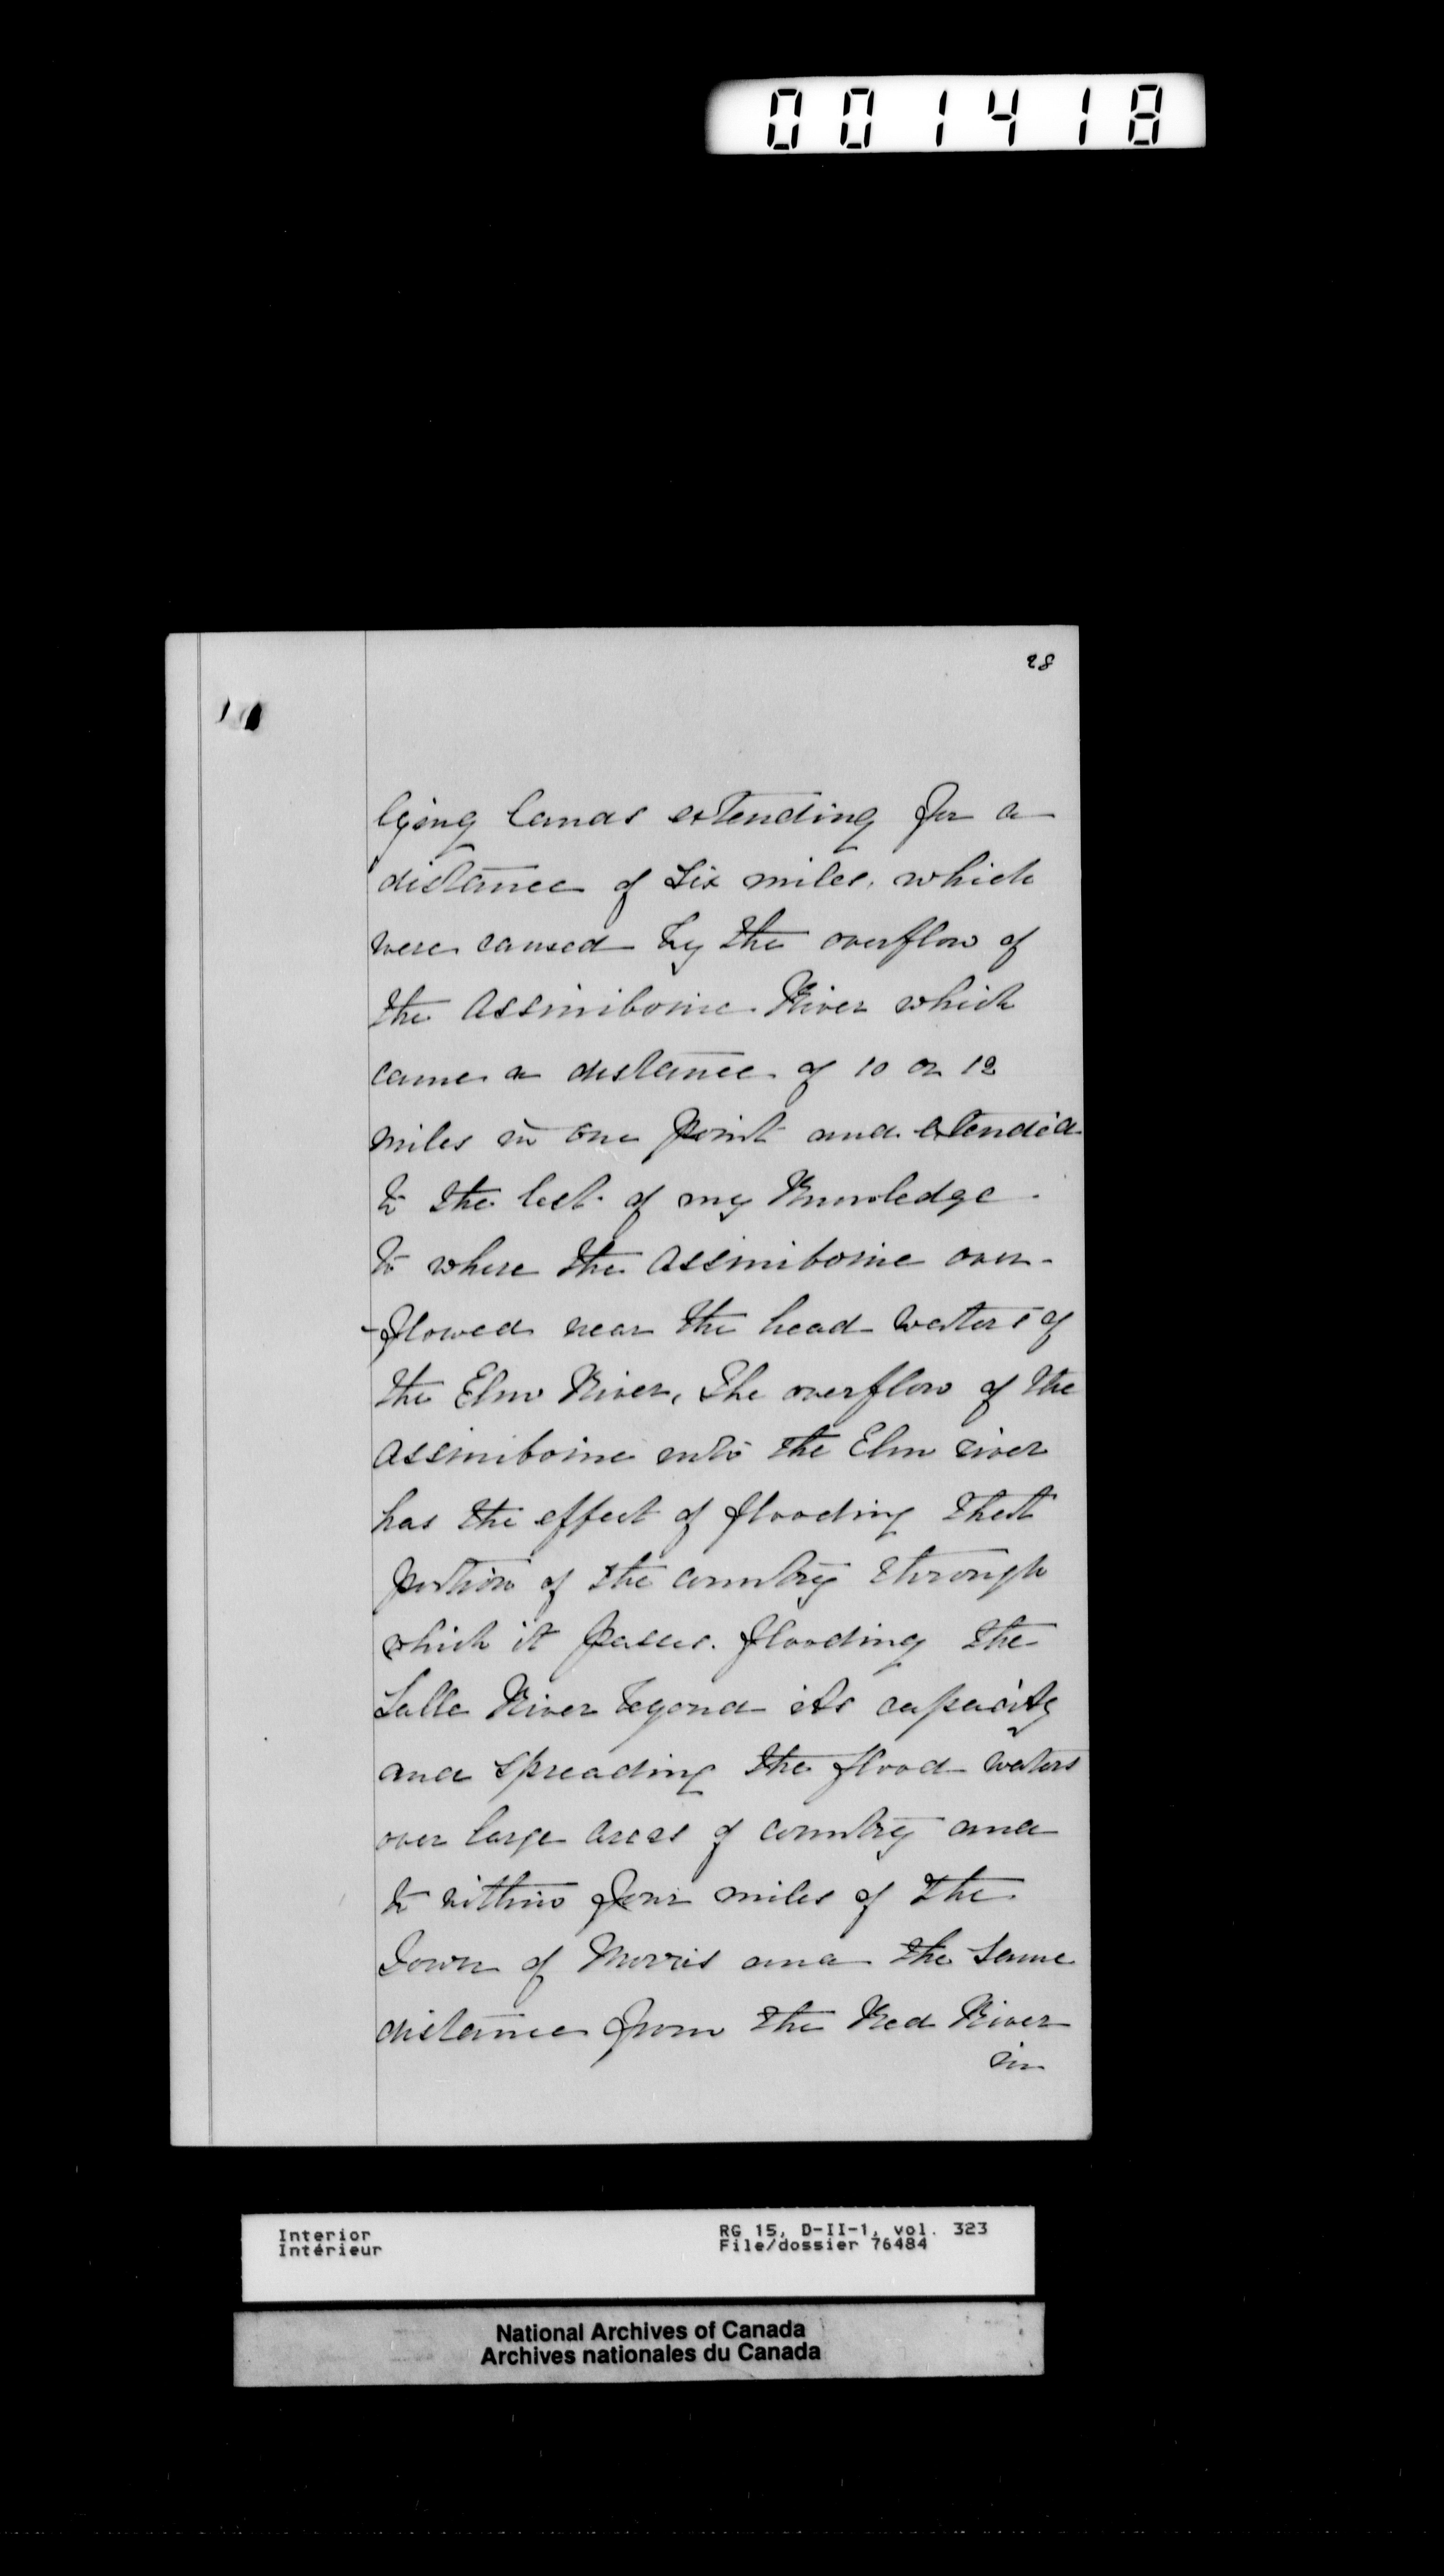 001418
28
lying lands extending for a
distance of six miles. which
were caused by the overflow of
the Assiniboine River which
came a distance of 10 or 12
miles in one point and extended
to the best of my Knowledge
to where the Assiniboine over-
-flowed near the head waters of
the Elm River, The overflow of the
Assiniboine into the Elm river
has the effect of flooding that
portion of the country through
which it passes. flooding the
Salle River beyond its capacity
and spreading the flood waters
over large areas of country and
to within four miles of the
Town of Morris and the same
distance from the Red River
in
Interior
Intérieur
RG 15, D-II-1, vol. 323
File/dossier 76484
National Archives of Canada
Archives nationales du Canada